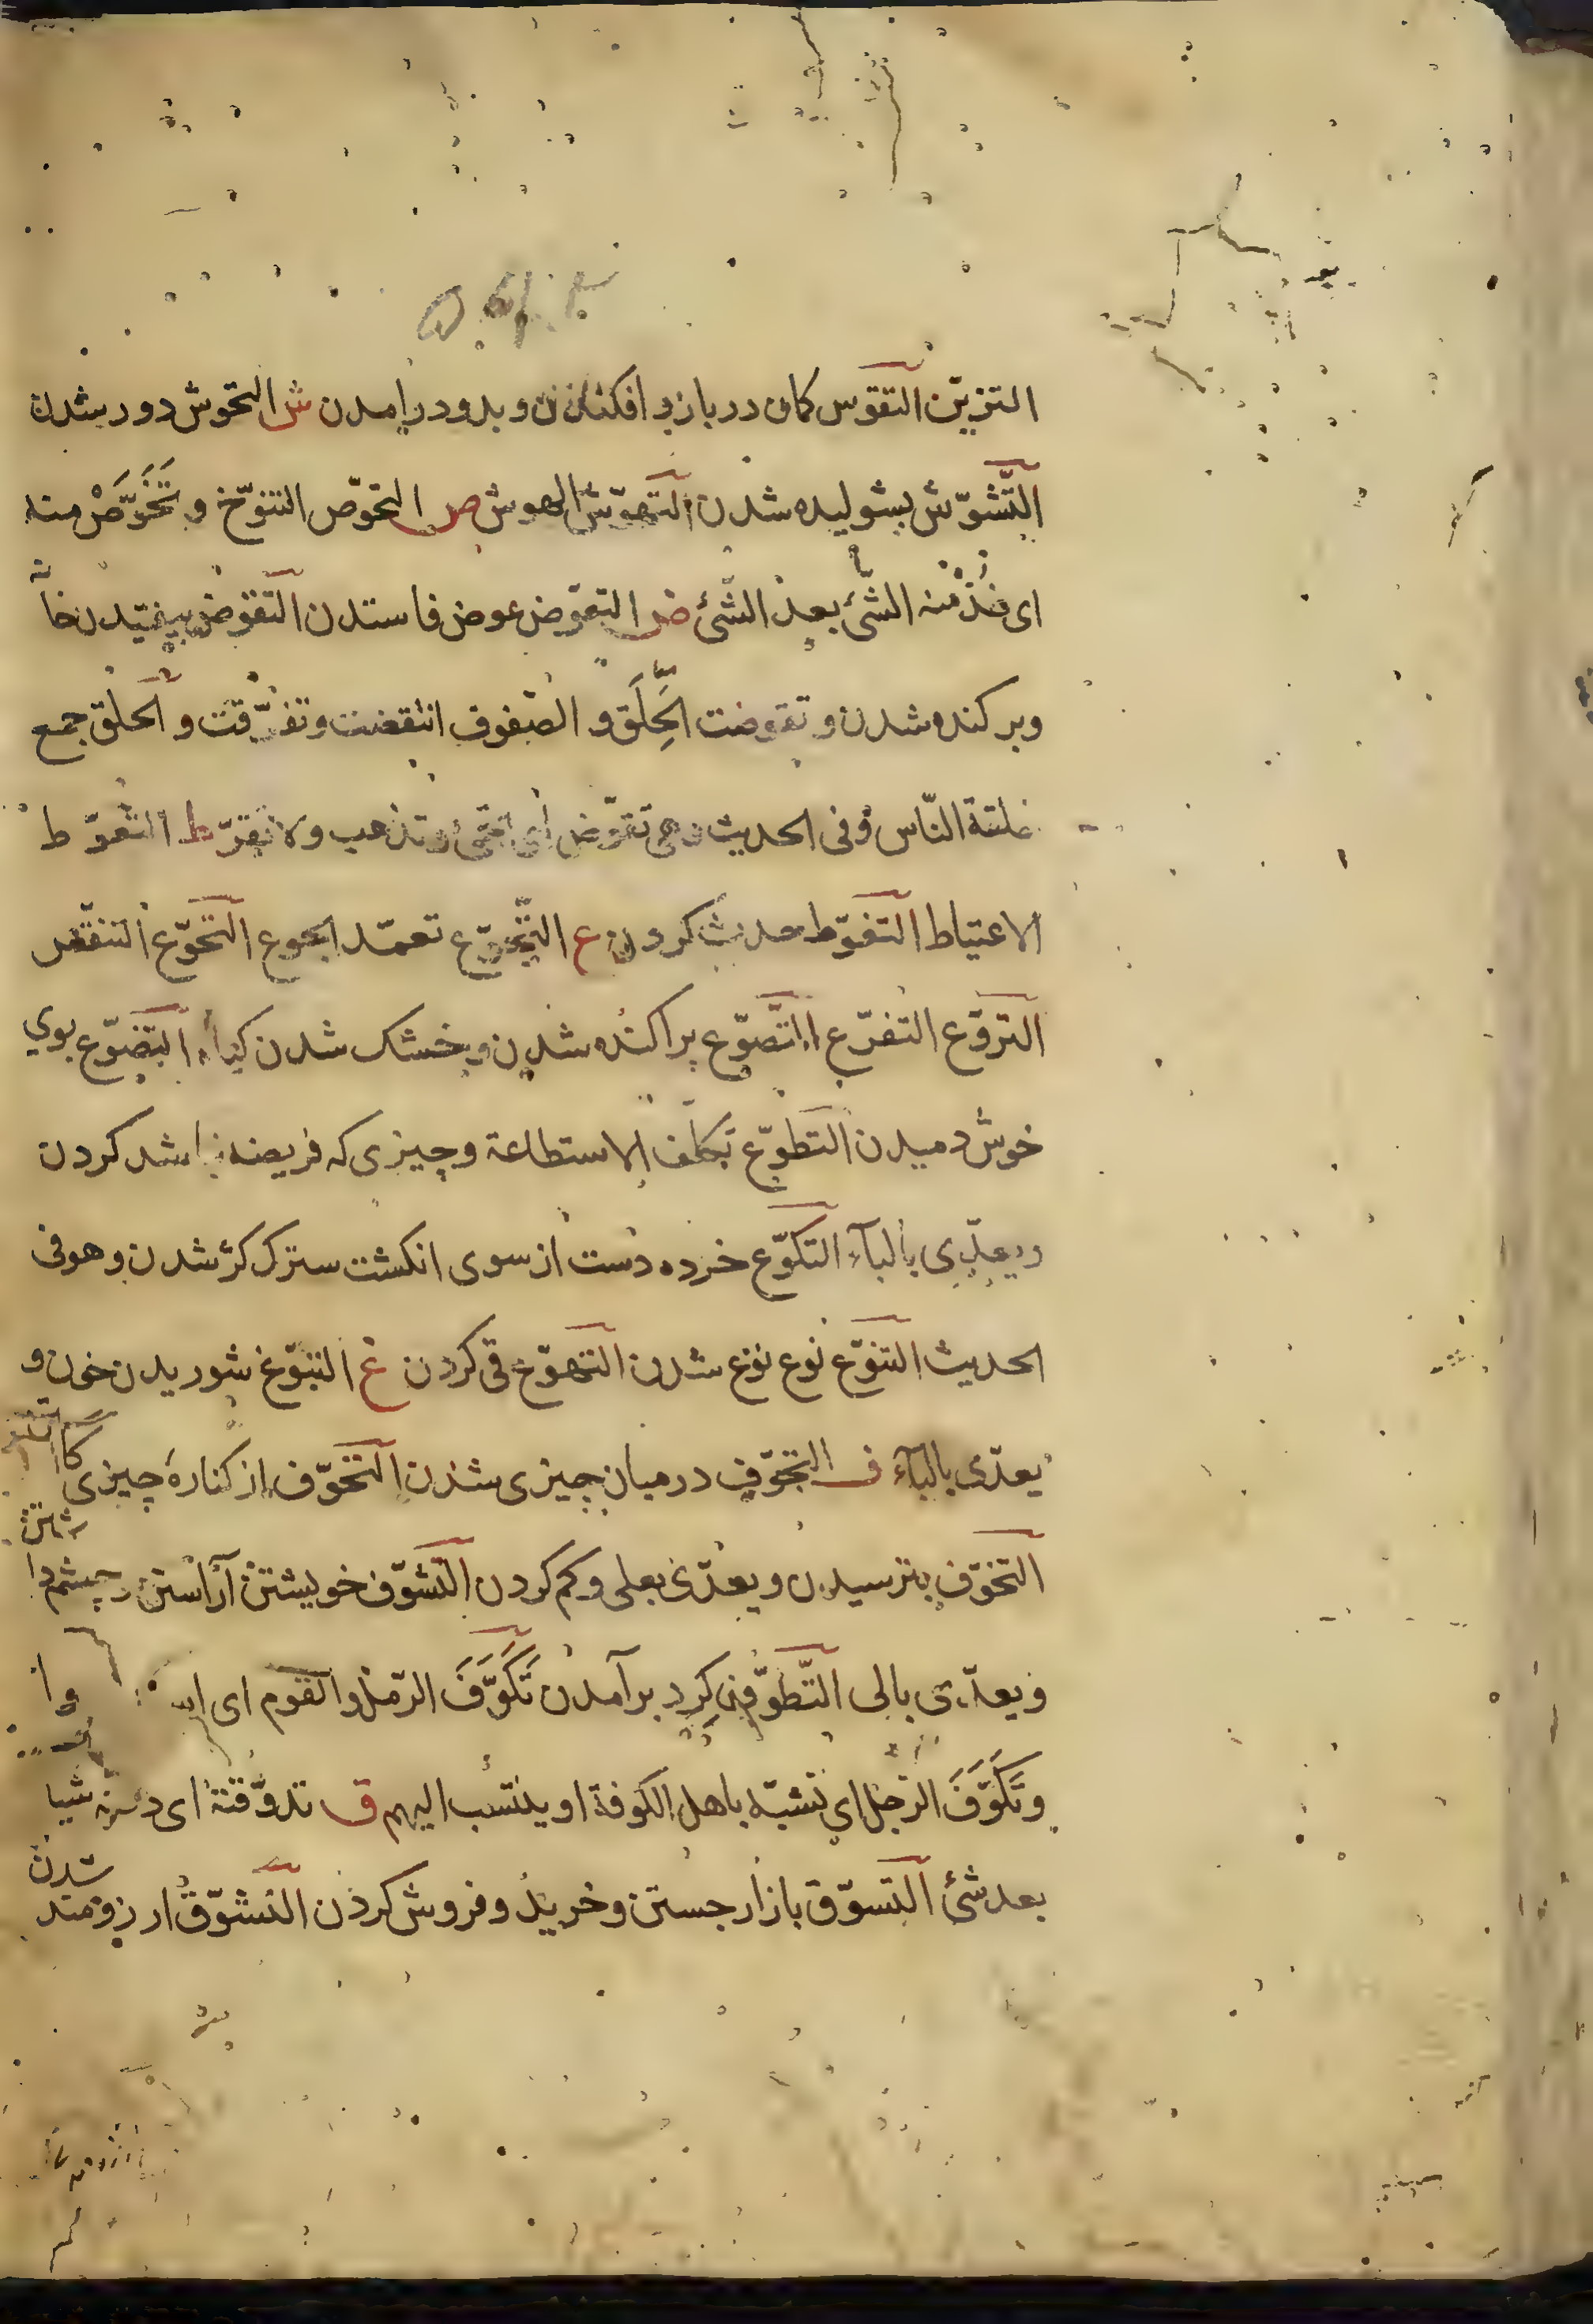 التزيّن التقوّس كمان در بازو افكندن و بدو درامدن ش التحوّش دور شدن
التّشوّش بشوليده شدن التهوّش الهوش ص التخوّص التنوّخ و تَخَوَّصْ منه
اى خُذْ منه الشّئ بعد الشّئ ض التعوّض عوض فا ستدن التقوّض بيفتيدن خانه
و بركنده شدن و تقوضت الحِلَق و الصّفوف انتقضت و تفرّقت و الحلق جمع
حلقة النّاس و فى الحديث و هى تقوّض اى تجئ و تذهب و لا تقرّ ط التعوّط
الاعتياط التغوّط حدث كردن ع التجوّع تعمّد الجوع التخوّع التنقّص
التروّع التفزّع التّصوّع پراكنده شدن و خشك شدن كياه التضوّع بوى
خوش دميدن التطوّع تكلف الاستطاعة و چيزى كه فريضه نباشد كردن
و يعدّى بالبآء التكوّع خرده دست از سوى انكشت سترك كژ شدن و هو فى
الحديث التنوّع نوع نوع شدن التهوّع قى كردن غ التبوّغ شوريدن خون و
يعدّى بالبآء ف التجوّف در ميان چيزى شدن التحوّف از كنارۀ چيزى كا
التخوّف بترسيدن و يعدّى بعلى و كم كردن التشوّف خويشتن آراستن و چشم دا
و يعدّى بالى التّطوّف كرد برآمدن تَكَوَّفَ الرّمل و القوم اى
و تَكَوَّفَ الرّجل اى تشبّه باهل الكوفة او ينتسب اليهم ق تذوّقته اى ذقته شيا
بعد شئ التسوّق بازار جستن و خريد و فروش كردن التشوّق ارزومند
شدن